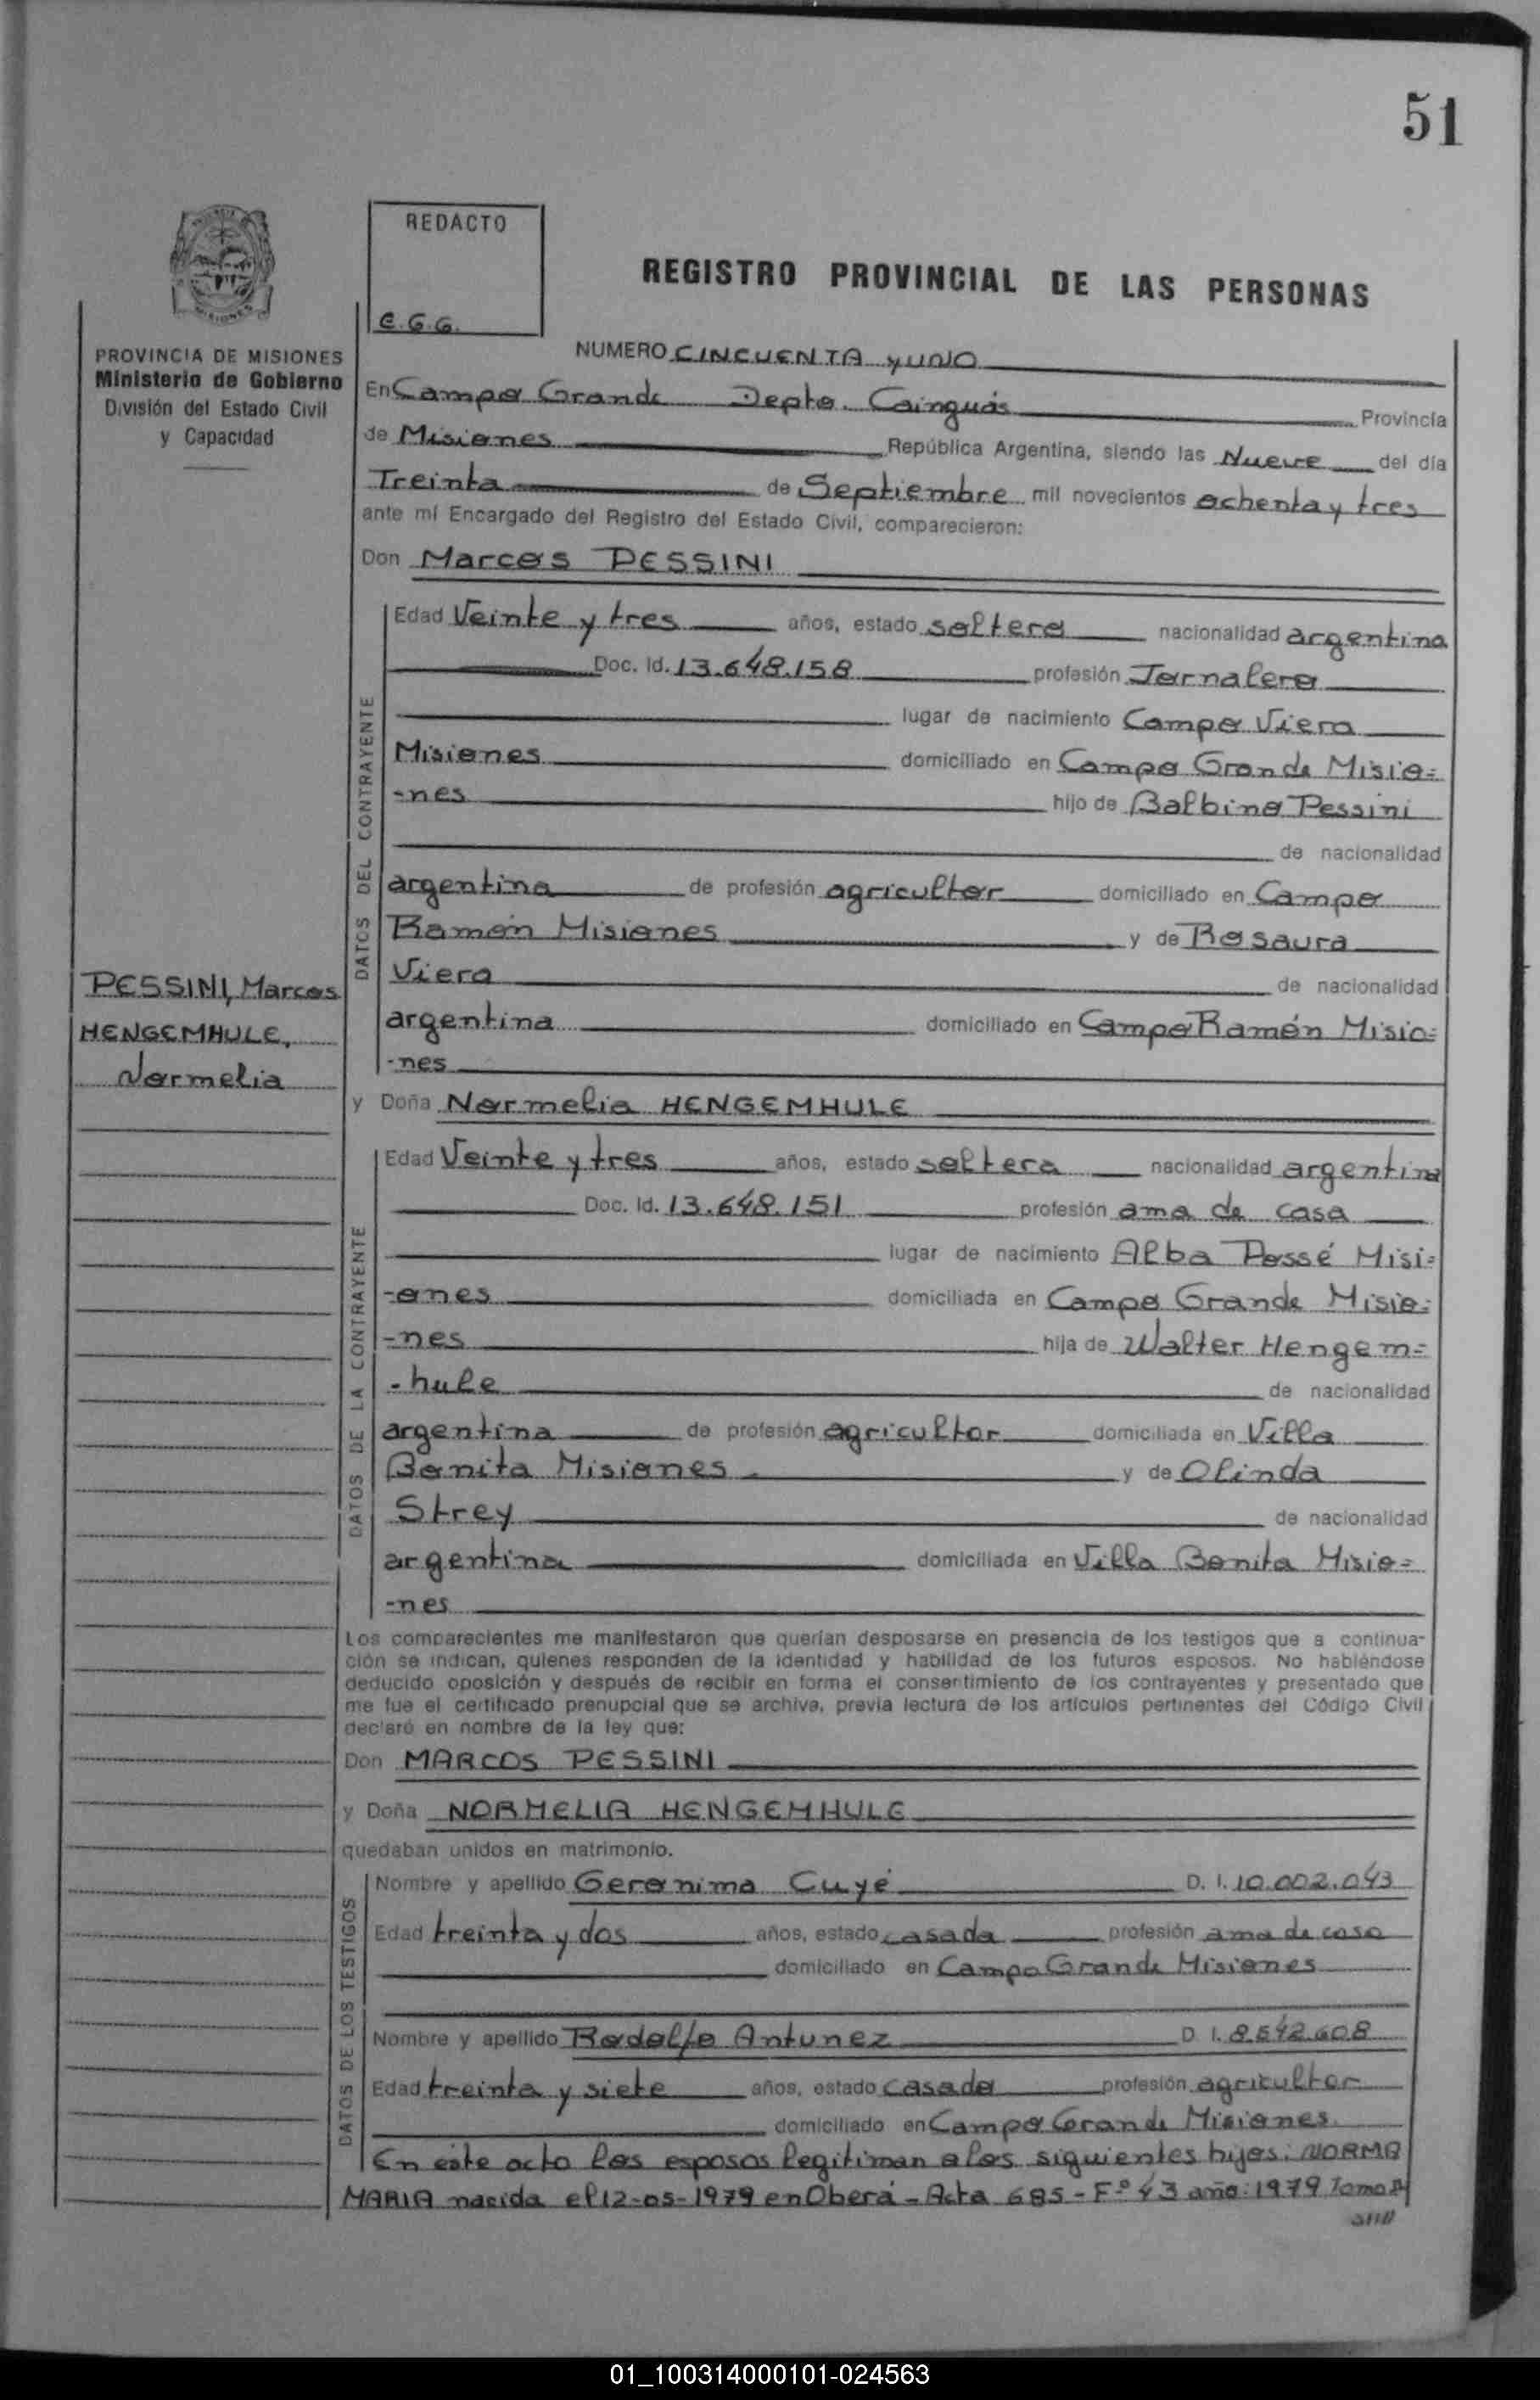 51
REDACTO
C.G.G.
REGISTRO PROVINCIAL DE LAS PERSONAS
PROVINCIA DE MISIONES
Ministerio de Gobierno
División del Estado Civil
y Capacidad
NUMERO CINCUENTA y UNO
En Campo Grande Depto. Cainguás Provincia
de Misiones República Argentina, siendo las Nueve del día
Treinta de Septiembre mil novecientos ochenta y tres
ante mí Encargado del Registro del Estado Civil, comparecieron:
Don Marcos PESSINI
DATOS DEL CONTRAYENTE
Edad Veinte y tres años, estado soltero nacionalidad argentina
Doc. Id. 13.648.158 profesión Jornalero
lugar de nacimiento Campo Viera
Misiones domiciliado en Campo Grande Misio=
-nes hijo de Balbino Pessini
de nacionalidad
argentina de profesión agricultor domiciliado en Campo
Ramón Misiones y de Rosaura
Viera de nacionalidad
argentina domiciliado en Campo Ramón Misio=
-nes
PESSINI, Marcos
HENGEMHULE,
Normelia
y Doña Normelia HENGEMHULE
DATOS DE LA CONTRAYENTE
Edad Veinte y tres años, estado soltera nacionalidad argentina
Doc. Id. 13.648.151 profesión ama de casa
lugar de nacimiento Alba Possé Misi=
-ones domiciliada en Campo Grande Misio=
-nes hija de Walter Hengem=
-hule de nacionalidad
argentina de profesión agricultor domiciliada en Villa
Bonita Misiones y de Olinda
Strey de nacionalidad
argentina domiciliada en Villa Bonita Misio=
-nes
Los comparecientes me manifestaron que querían desposarse en presencia de los testigos que a continua-
ción se indican, quienes responden de la identidad y habilidad de los futuros esposos. No habiéndose
deducido oposición y después de recibir en forma el consentimiento de los contrayentes y presentado que
me fue el certificado prenupcial que se archiva, previa lectura de los artículos pertinentes del Código Civil
declaró en nombre de la ley que:
Don MARCOS PESSINI
y Doña NORMELIA HENGEMHULE
quedaban unidos en matrimonio.
DATOS DE LOS TESTIGOS
Nombre y apellido Geronima Cuyé D. I. 10.002.043
Edad treinta y dos años, estado casada profesión ama de casa
domiciliado en Campo Grande Misiones
Nombre y apellido Rodolfo Antunez D. I. 8.542.608
Edad treinta y siete años, estado casado profesión agricultor
domiciliado en Campo Grande Misiones
En este acto los esposos legitiman a los siguientes hijos: NORMA
MARIA nacida el 12-05-1979 en Oberá - Acta 685 - Fº 43 año: 1979 Tomo
01_100314000101-024563